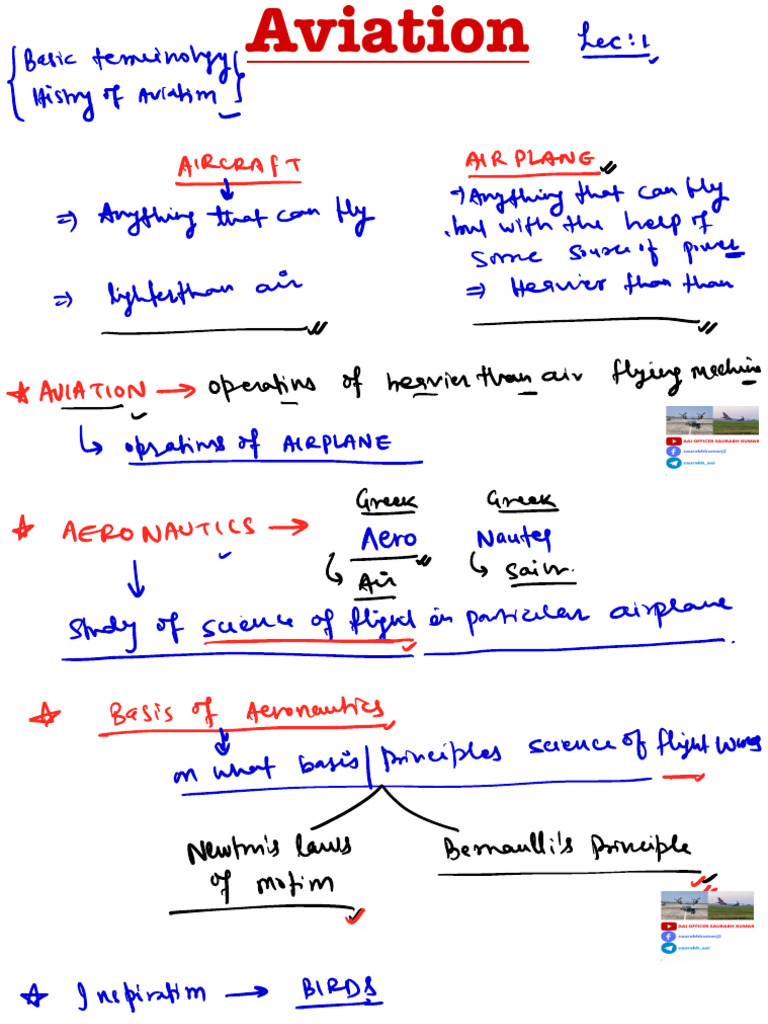 Aviation
Lec:1
Basic terminology
History of Aviation
AIRCRAFT
AIRPLANE
⇒ Anything that can fly
→ Anything that can fly
but with the help of
some source of power
⇒ lighter than air
⇒ Heavier than than
☆ AVIATION → operations of heavier than air flying machine
↳ oprations of AIRPLANE
AAI OFFICER SAURABH KUMAR
saurabhkumarj2
saurabh_aai
Greek Greek
☆ AERONAUTICS → Aero Nautes
↳ Air ↳ Sailor
↓
Study of science of flight in particular airplane
☆ Basis of Aeronautics
↓
on what basis/principles science of flight works
Newton's laws
of motion
Bernaulli's principle
AAI OFFICER SAURABH KUMAR
saurabhkumarj2
saurabh_aai
☆ Inspiration → BIRDS